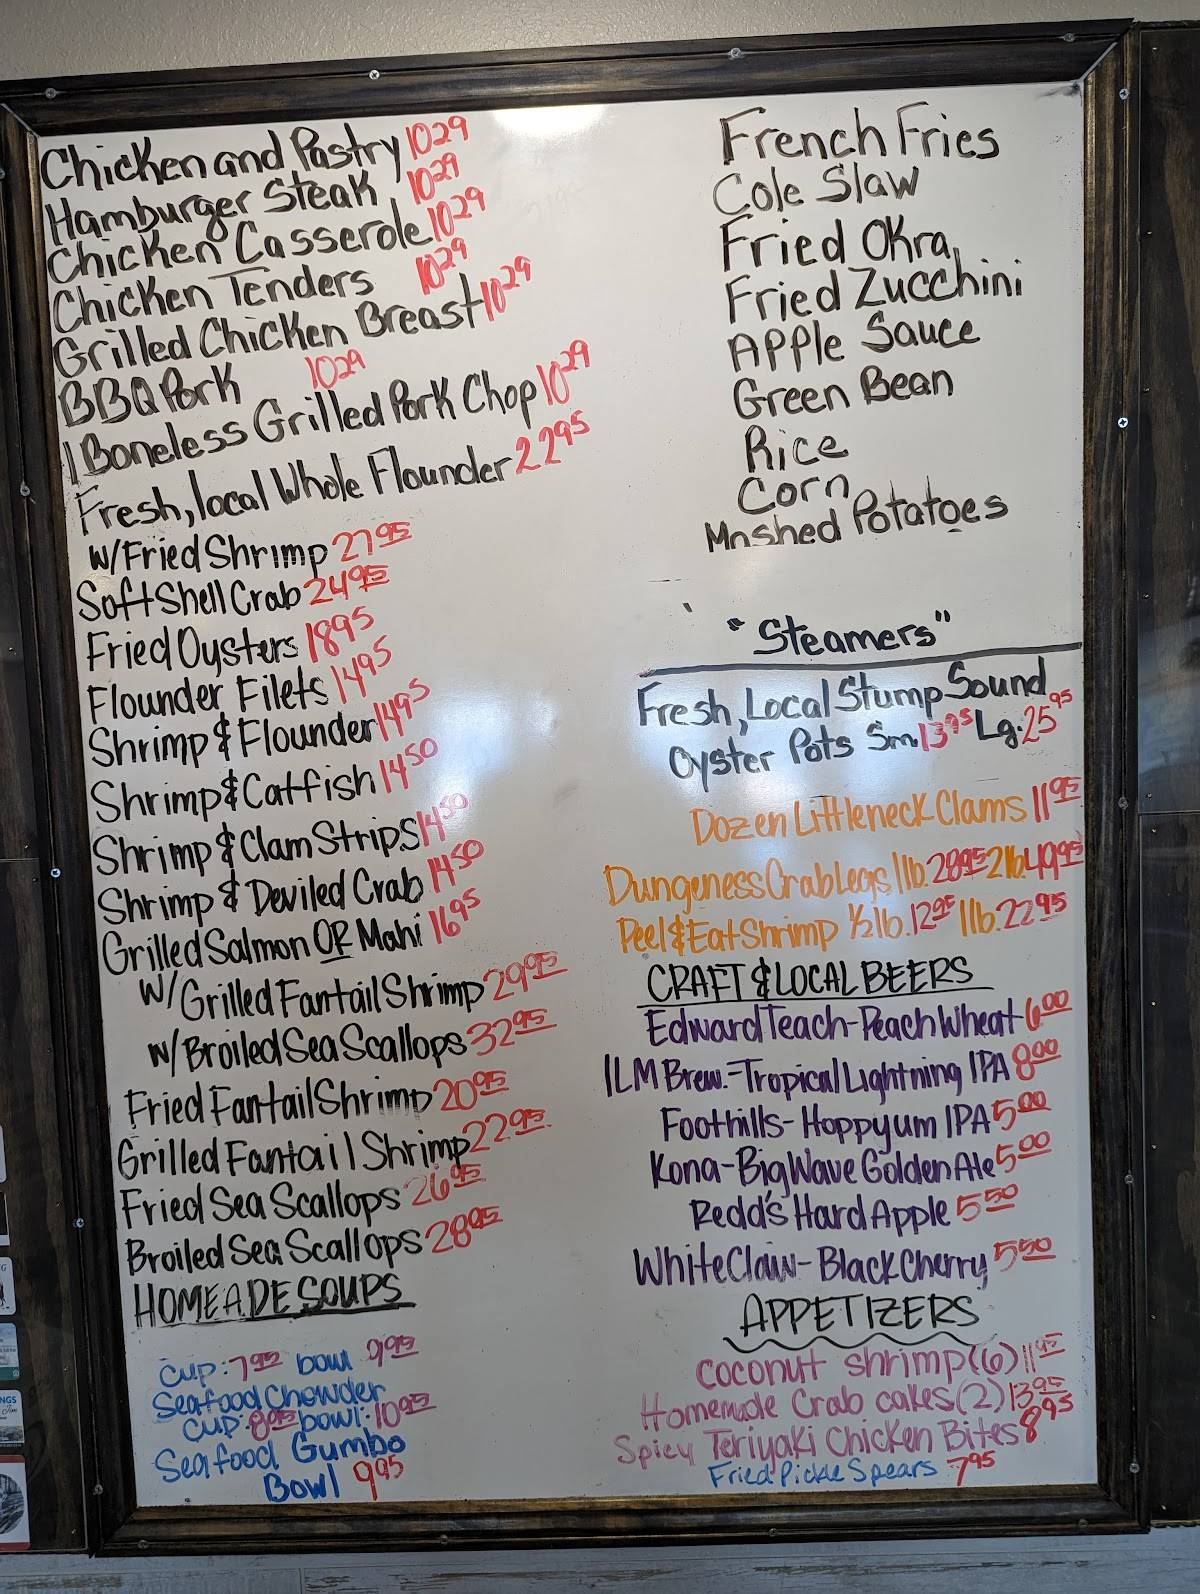 Chicken and Pastry 10 29
Hamburger Steak 10 29
Chicken Casserole 10 29
Chicken Tenders 10 29
Grilled Chicken Breast 10 29
BBQ Pork 10 29
1 Boneless Grilled Pork Chop 10 29
Fresh, local Whole Flounder 22 95
w/Fried Shrimp 27 95
Soft Shell Crab 24 95
Fried Oysters 18 95
Flounder Filets 14 95
Shrimp & Flounder 14 95
Shrimp & Catfish 14 50
Shrimp & Clam Strips 14 50
Shrimp & Deviled Crab 14 50
Grilled Salmon OR Mahi 16 95
w/Grilled Fantail Shrimp 29 95
w/Broiled Sea Scallops 32 95
Fried Fantail Shrimp 20 95
Grilled Fantail Shrimp 22 95
Fried Sea Scallops 26 95
Broiled Sea Scallops 28 95
HOMEADE SOUPS
cup: 7 95 bowl 9 95
Seafood Chowder
cup: 8 95 bowl: 10 95
Seafood Gumbo
Bowl 9 95
French Fries
Cole Slaw
Fried Okra
Fried Zucchini
Apple Sauce
Green Bean
Rice
Corn
Mashed Potatoes
"Steamers"
Fresh, Local Stump Sound
Oyster Pots Sm. 13 95 Lg. 25 95
Dozen Littleneck Clams 11 95
Dungeness Crab Legs 1 lb. 28 95 2 lb. 49 95
Peel & Eat Shrimp 1/2 lb. 12 95 1 lb. 22 95
CRAFT & LOCAL BEERS
Edward Teach - Peach Wheat 6 00
ILM Brew. - Tropical Lightning IPA 8 00
Foothills - Hoppyum IPA 5 00
Kona - Big Wave Golden Ale 5 00
Redd's Hard Apple 5 50
White Claw - Black Cherry 5 50
APPETIZERS
Coconut shrimp (6) 11 95
Homemade Crab cakes (2) 13 95
Spicy Teriyaki Chicken Bites 8 95
Fried Pickle Spears 7 95